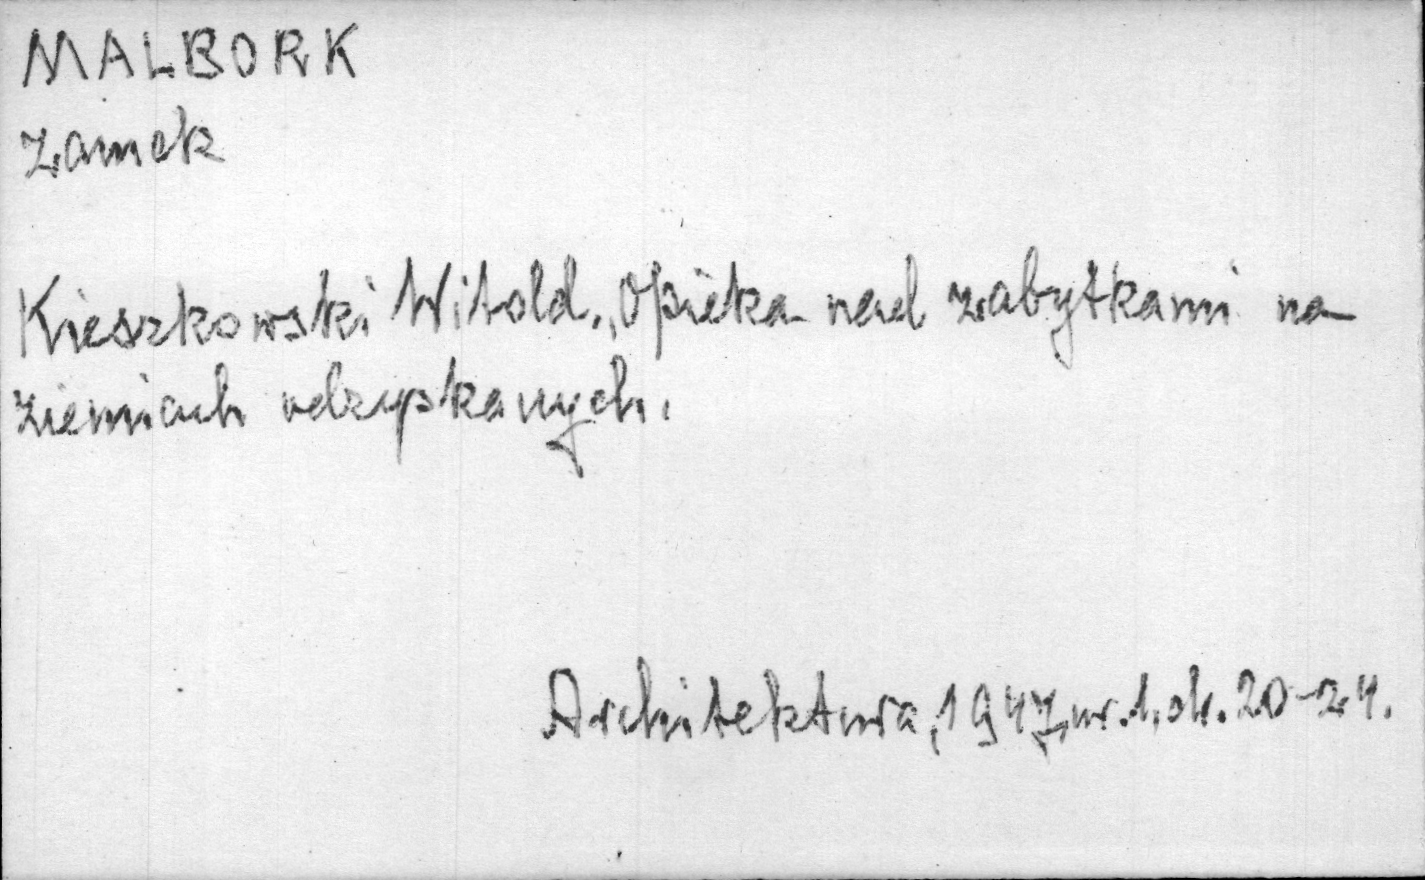 MALBORK
zamek
Kieszkowski Witold., Opieka nad zabytkami na
ziemiach odzyskanych.
Architektura, 1947, nr. 1, str. 20-24.